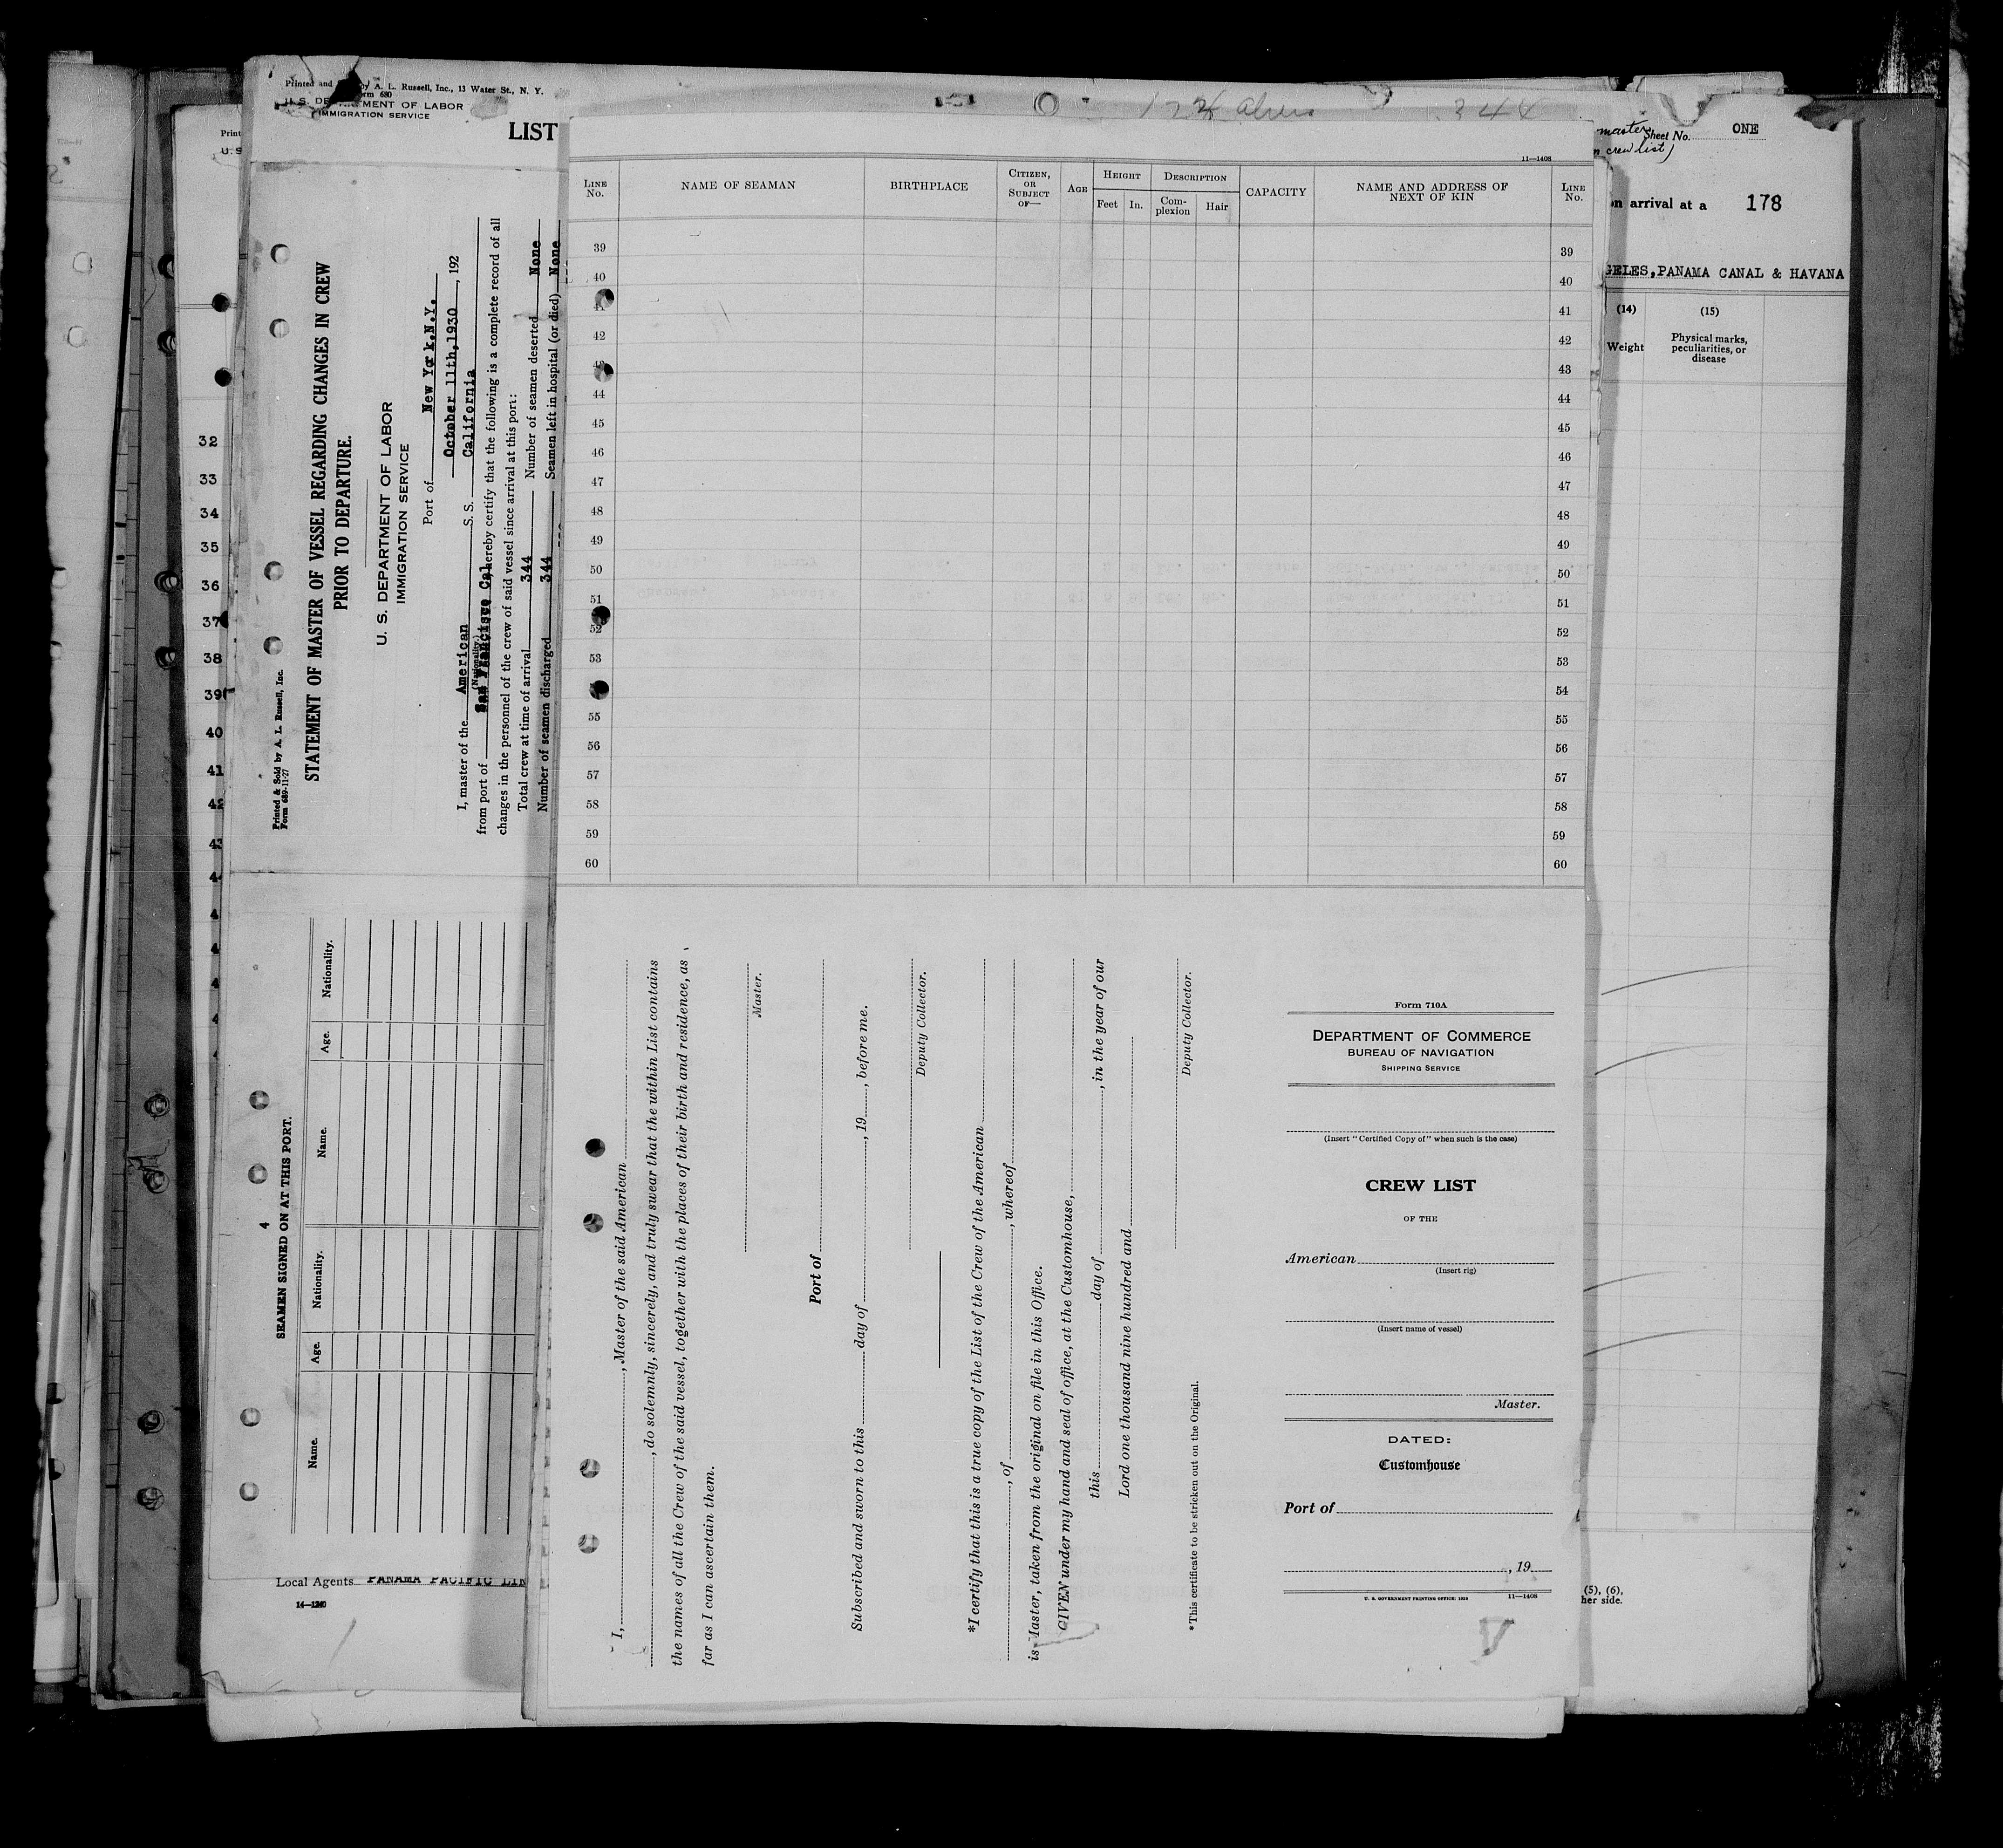 Printed and by A. L. Russell, Inc., 13 Water St., N. Y.
Form 680
U. S. DEPARTMENT OF LABOR
IMMIGRATION SERVICE
LIST
Print
U. S
32
33
34
35
36
37
38
39
40
41
42
43
Printed & Sold by A. L. Russell, Inc.
Form 689-11-27
STATEMENT OF MASTER OF VESSEL REGARDING CHANGES IN CREW
PRIOR TO DEPARTURE.
U. S. DEPARTMENT OF LABOR
IMMIGRATION SERVICE
Port of New York.N.Y.
October 11th,1930, 192
I, master of the American S. S. California
(Nationality.)
from port of San Francisco Cal, hereby certify that the following is a complete record of all
changes in the personnel of the crew of said vessel since arrival at this port:
Total crew at time of arrival 344 Number of seamen deserted None
Number of seamen discharged 344 Seamen left in hospital (or died) None
4
SEAMEN SIGNED ON AT THIS PORT.
Name. Age. Nationality. Name. Age. Nationality.
Local Agents PANAMA PACIFIC LIN
14—1240
344
11—1408
LINE No. NAME OF SEAMAN BIRTHPLACE CITIZEN, OR SUBJECT OF— AGE HEIGHT Feet In. DESCRIPTION Complexion Hair CAPACITY NAME AND ADDRESS OF NEXT OF KIN LINE No.
39 39
40 40
41 41
42 42
43 43
44 44
45 45
46 46
47 47
48 48
49 49
50 50
51 51
52 52
53 53
54
55 55
56 56
57 57
58 58
59 59
60 60
I, , Master of the said American
, do solemnly, sincerely, and truly swear that the within List contains
the names of all the Crew of the said vessel, together with the places of their birth and residence, as
far as I can ascertain them.
Master.
Port of
Subscribed and sworn to this day of , 19 , before me.
Deputy Collector.
*I certify that this is a true copy of the List of the Crew of the American
, of , whereof
is Master, taken from the original on file in this Office.
GIVEN under my hand and seal of office, at the Customhouse,
this day of , in the year of our
Lord one thousand nine hundred and
Deputy Collector.
*This certificate to be stricken out on the Original.
Form 710A
DEPARTMENT OF COMMERCE
BUREAU OF NAVIGATION
SHIPPING SERVICE
(Insert "Certified Copy of" when such is the case)
CREW LIST
OF THE
American
(Insert rig)
(Insert name of vessel)
Master.
DATED:
Customhouse
Port of
, 19
U. S. GOVERNMENT PRINTING OFFICE: 1930 11—1408
master
crew list)
Sheet No. ONE
on arrival at a 178
GELES,PANAMA CANAL & HAVANA
(14) (15)
Weight Physical marks, peculiarities, or disease
(5), (6),
her side.